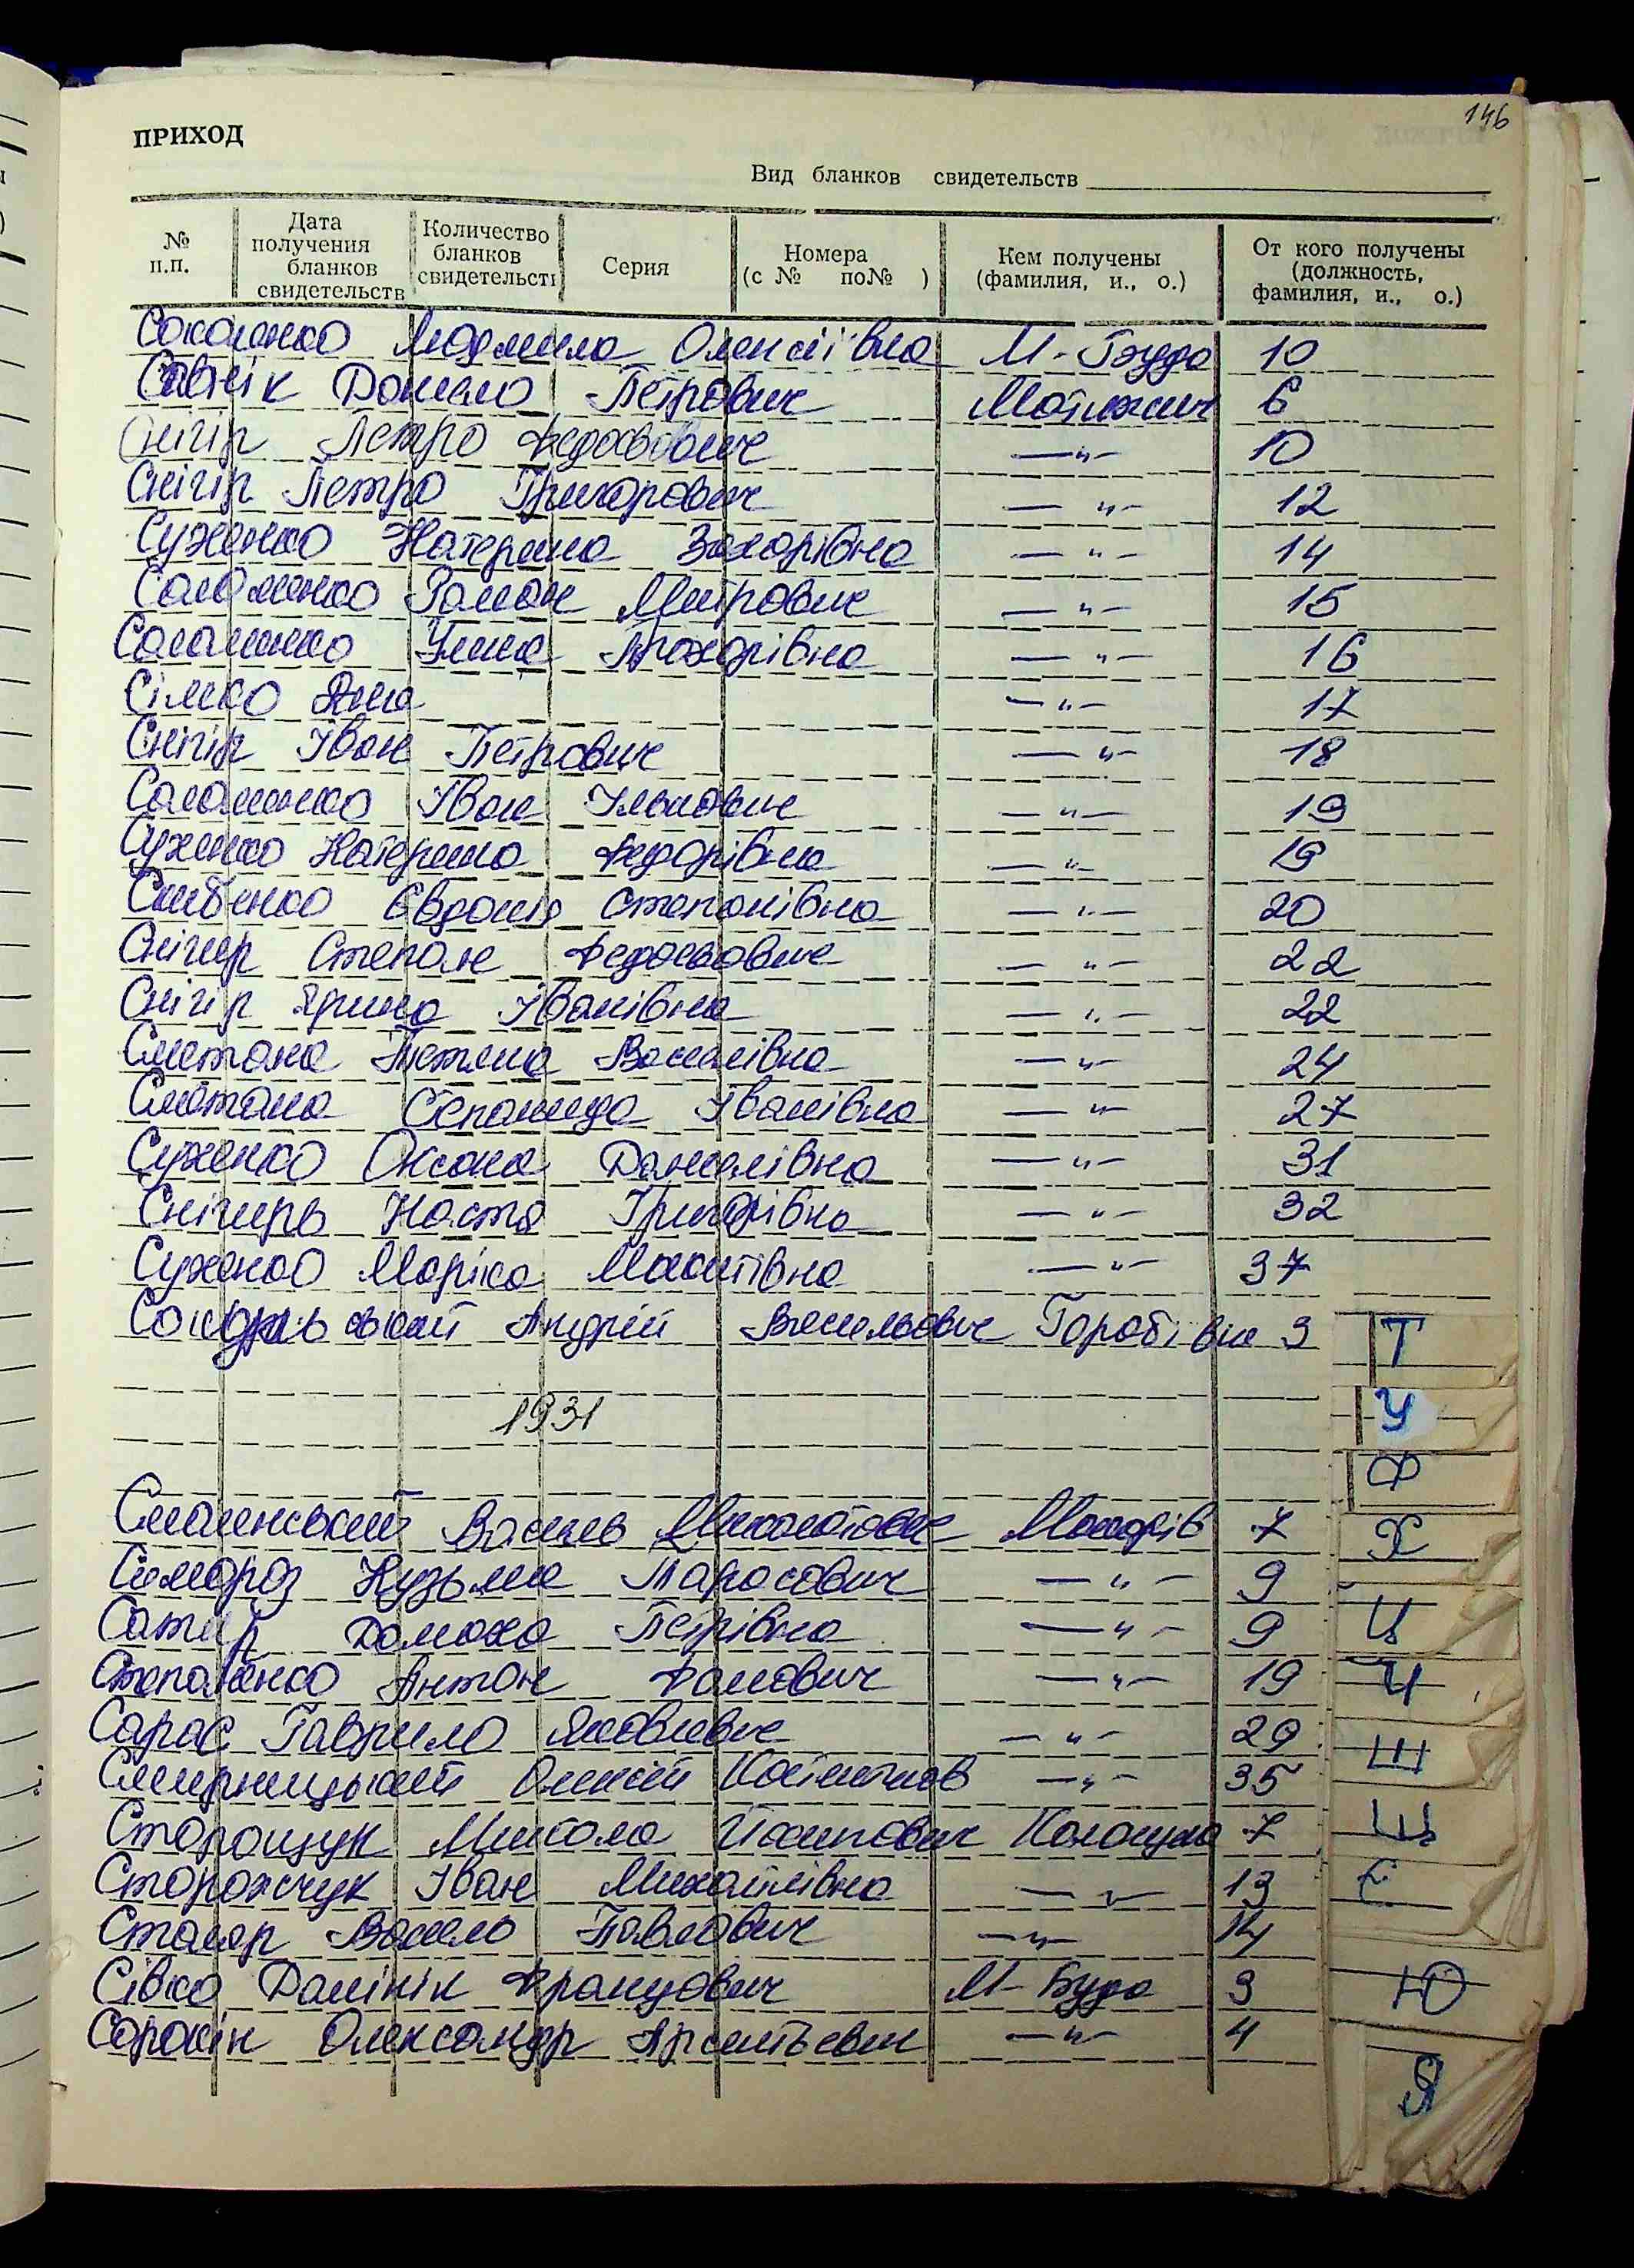 146
ПРИХОД
Вид бланков свидетельств
№ п.п.
Дата получения бланков свидетельств
Количество бланков свидетельств
Серия
Номера (с № по№ )
Кем получены (фамилия, и., о.)
От кого получены (должность, фамилия, и., о.)
Соколенко Людмила Олексіївна М-Буда 10
Савчік Данило Петрович Мотижин 6
Снігір Петро Федосьович —"— 10
Снігір Петро Григорович —"— 12
Суженко Катерина Захарівна —"— 14
Соломенко Роман Митрович —"— 15
Соломенко Уляна Прохорівна —"— 16
Сімко Яна —"— 17
Снігір Іван Петрович —"— 18
Соломенко Іван Ількович —"— 19
Суженко Катерина Федорівна —"— 19
Скибенко Євдокія Степанівна —"— 20
Снігир Степан Федосьович —"— 22
Снігір Ярина Іванівна —"— 22
Сметана Тетяна Василівна —"— 24
Сметана Степанида Іванівна —"— 27
Суженко Оксана Данилівна —"— 31
Снігирь Настя Григорівна —"— 32
Суженко Марійка Микитівна —"— 37
Андрій Васильович Горобіївка 3
1931
Смолинський Василь Макарів 7
Симороз Кузьма Тарасович —"— 9
Сатир Домаха Петрівна —"— 9
Степаненко Антон Фомович —"— 19
Сарас Гаврило Яковлевич —"— 29
Смерницький Олексій —"— 35
Сторощук Микола Йосипович 7
Сторожчук Іван Михайлівна —"— 13
Столяр Василь Павлович —"— 14
Сівко Домінік Францович М-Буда 3
Сорокін Олександр Арсентьевич —"— 4
Т
У
Ф
Х
Ц
Ч
Ш
Щ
Є
Ю
Я